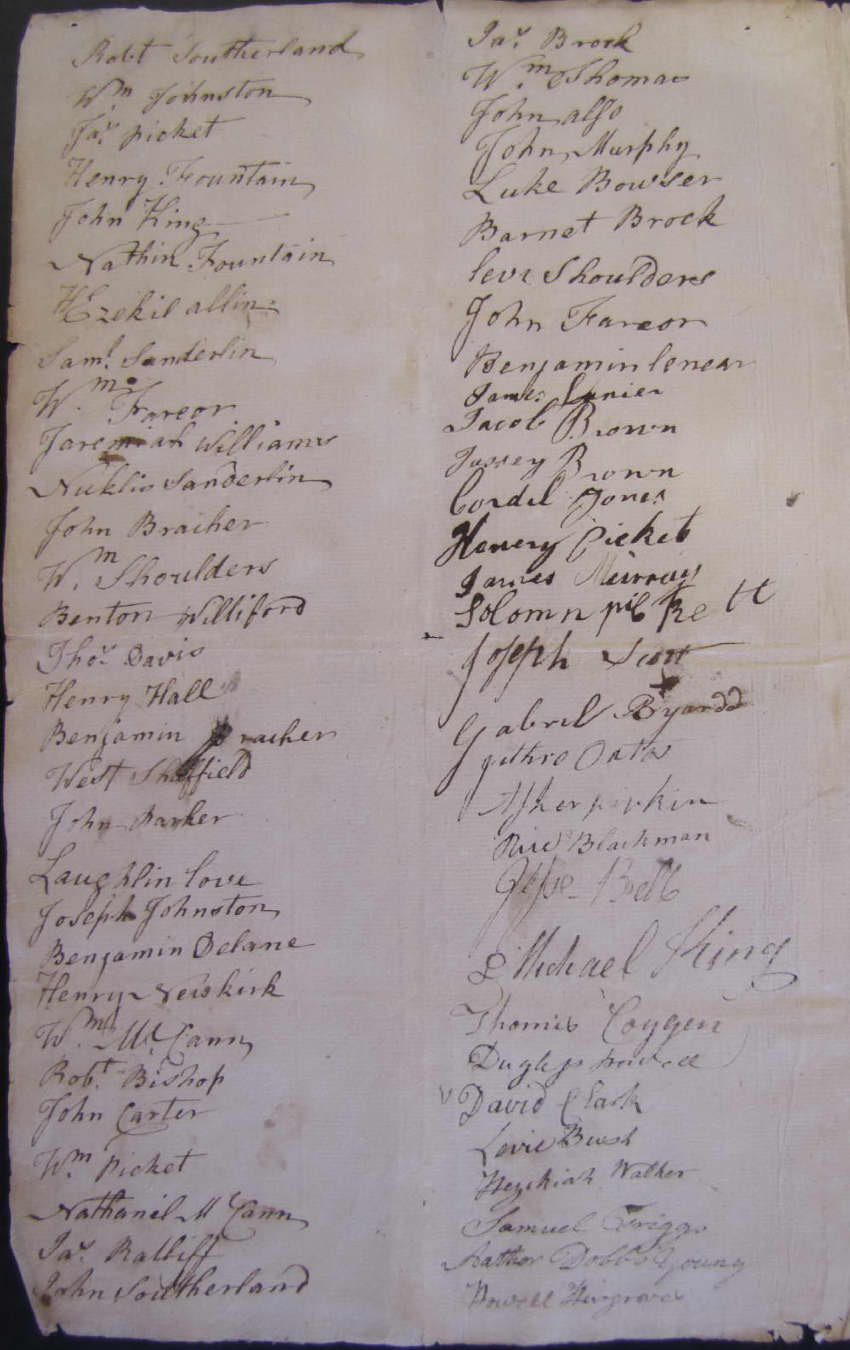 Robt Southerland
Wm Johnston
Jas. picket
Henry Fountain
John King
Nathin Fountain
Hezekil allin
Saml. Sanderlin
Wm. Fareor
Jaremiah Williams
Nicklis Sanderlin
John Bracher
Wm. Shoulders
Benton Williford
Thos. Davis
Henry Hall
Benjamin Bracher
West Sheffield
John Parker
Laughlin Love
Joseph Johnston
Benjamin Delane
Henry Newkirk
Wm. McCann
Robt. Bishop
John Carter
Wm. Picket
Nathaniel McCann
Jas. Ratliff
John Southerland
Jas. Brock
Wm. Thomas
John also
John Murphy
Luke Bowser
Barnet Brock
Levi Shoulders
John Fareor
Benjamin Lenear
James Lanier
Jacob Brown
Jussey Brown
Cordel Jones
Henery Picket
James Murray
Solomn
Joseph Scott
Gabriel Byardd
Jethro Oates
Asher pipkin
Rice Blackman
Jesse Bell
Michael King
Thomas Coggen
David Clark
Levie Bush
Hezekiah Walker
Samuel Griggs
Dobbs Young
Powell